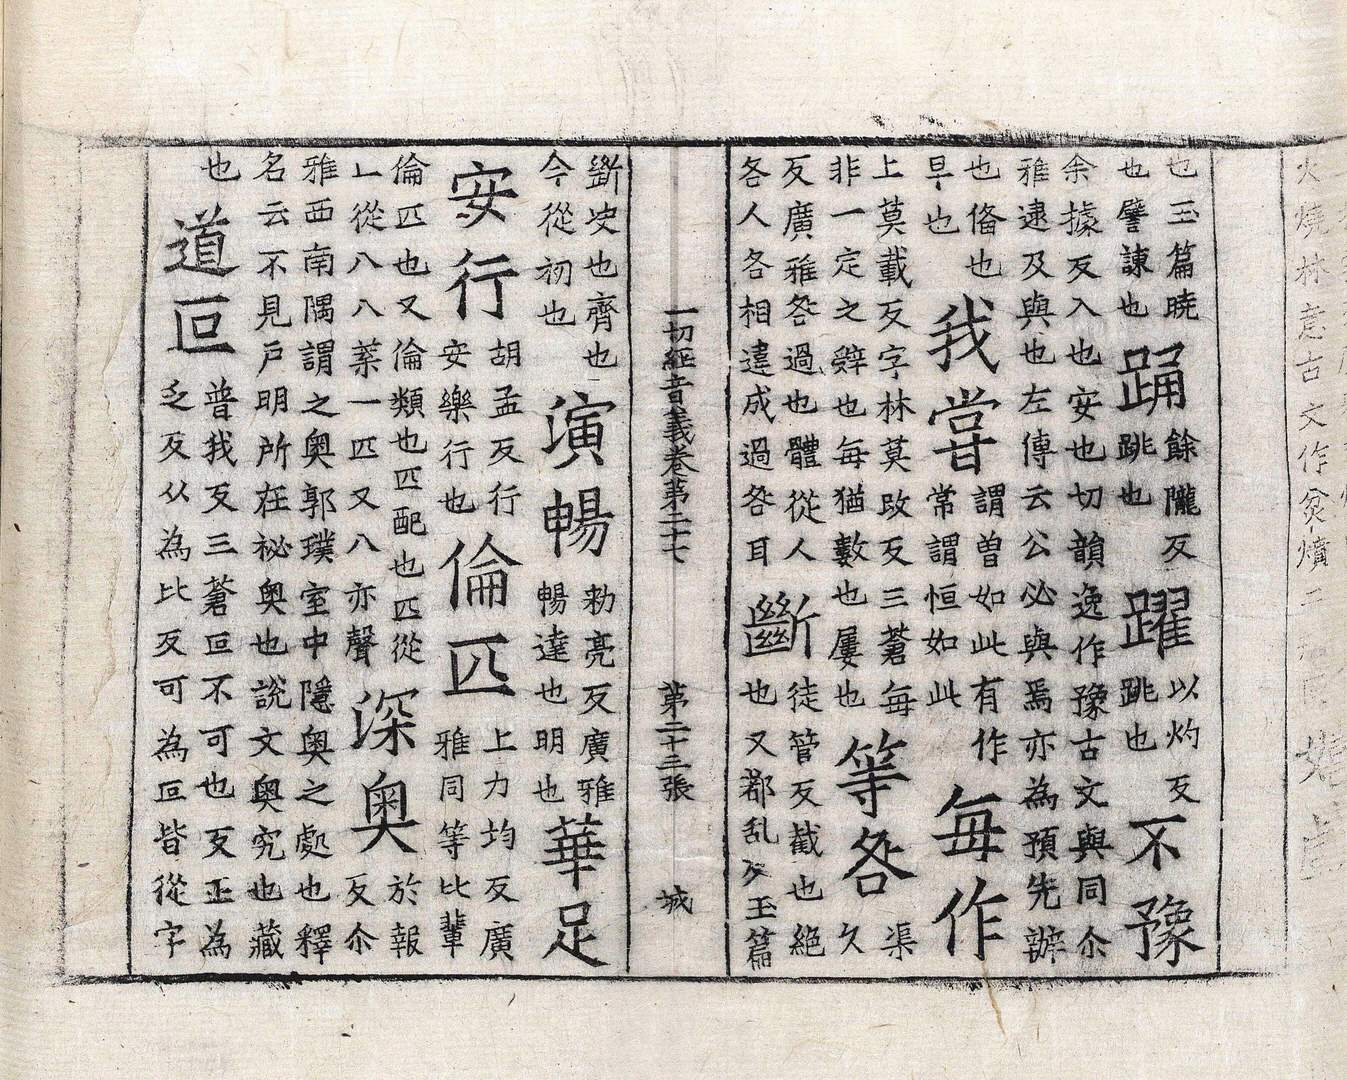 也玉篇暁也譬諫也踊餘隴反跳也躍以灼反跳也不豫
余據反入也安也切韻逸作豫古文與同尒雅逮及與也左傳云公必與焉亦為預先辦
也俻也早也我甞謂曽如此有作常謂恒如此每作
上莫載反字林莫改反三蒼每非一定之辤也每猶數也屢也等咎渠久
反廣雅咎過也體從人各人各相違成過咎耳斷徒管反截也絕也又都乱反玉篇
一切經音義卷第二十七 第二十三張 城
斷决也齊也今從初也演暢勑亮反廣雅暢達也明也華足
安行胡孟反行安樂行也倫匹上力均反廣雅同等比輩
倫匹也又倫類也匹配也匹從𠃊從八八葉一匹又八亦聲深奥於報反尒
雅西南隅謂之奥郭璞室中隱奥之處也釋名云不見戶明所在祕奥也說文奥究也藏
也道叵普我反三蒼叵不可也反正為乏反以為比反可為叵皆從字